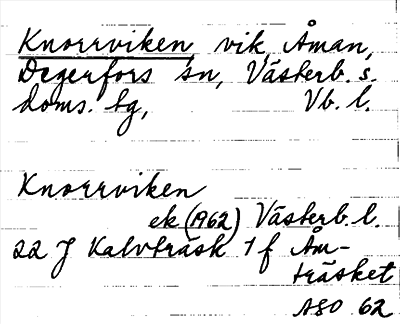 Knorrviken, vik, Åman,
Degerfors sn, Västerb. s.
doms. tg, Vb. l.
Knorrviken
ek (1962) Västerb. l.
22 J Kalvträsk 1 f Åm-
träsket
ASO 62